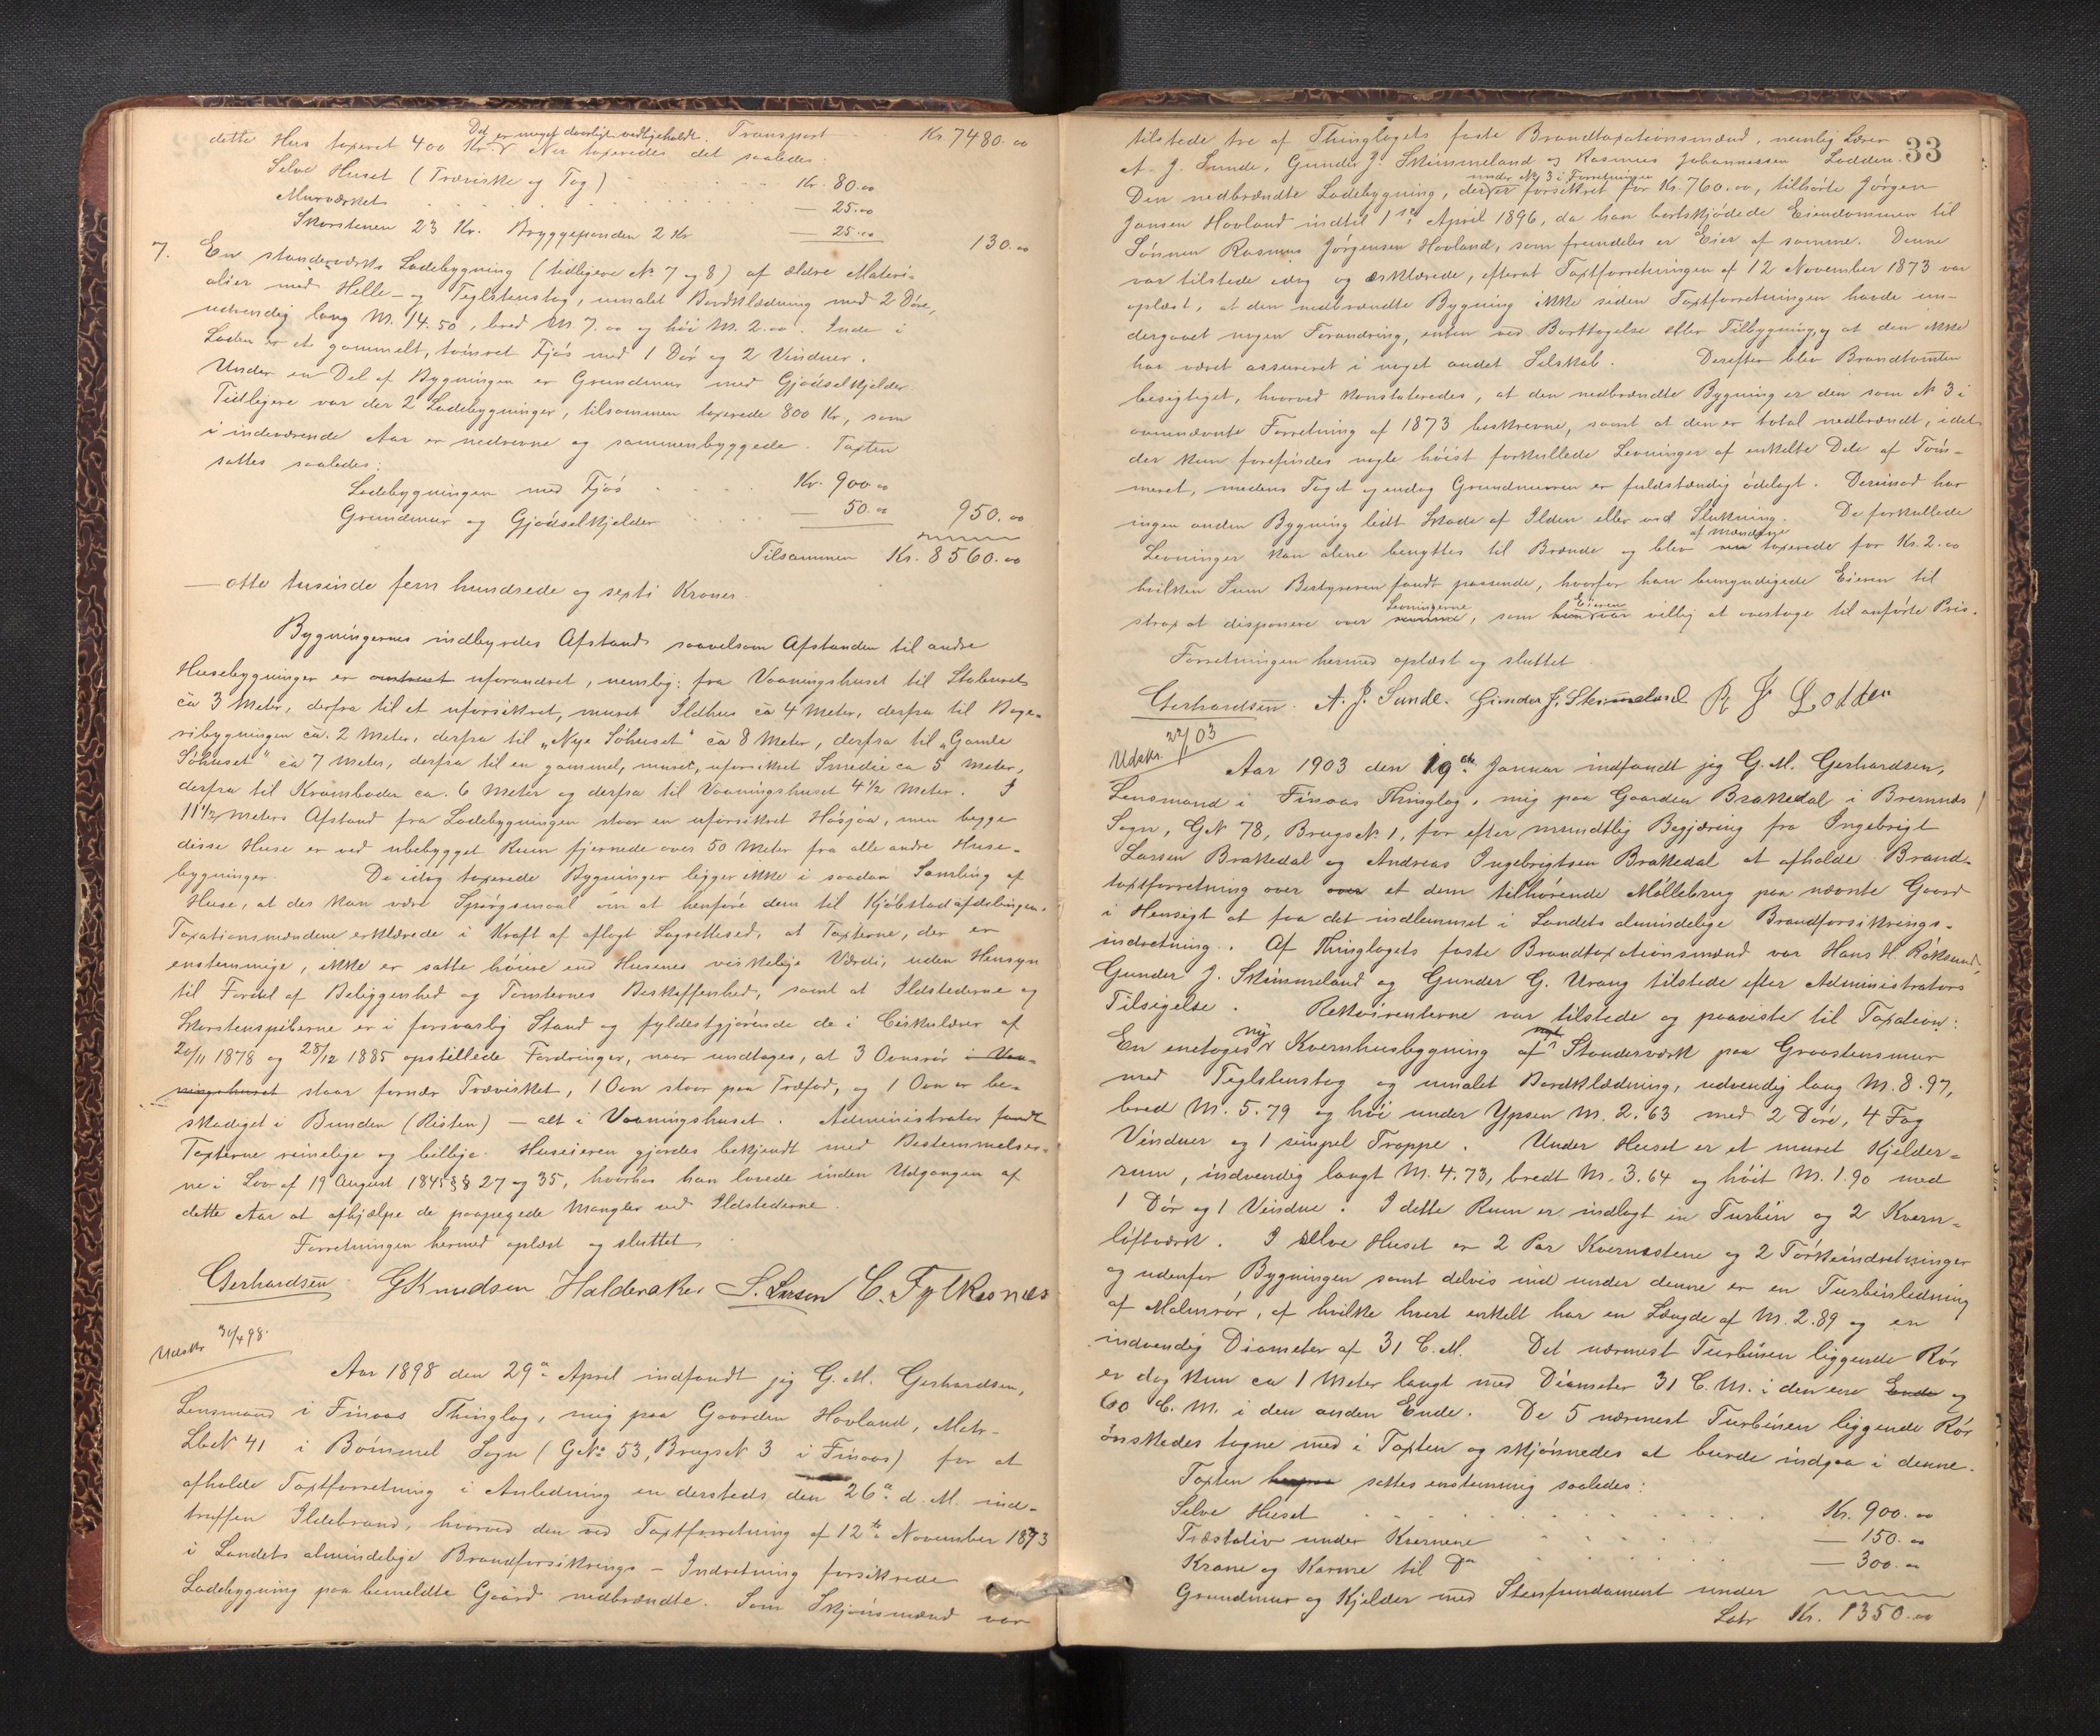 Det er meget daarligt vedligeholdt. Transport Kr. 7480.00
dette Hus taxeret 400 Kr. Nu taxeredes det saaledes:
Selve Huset (Trævirke og Tag) Kr. 80.00
Murværket — 25.00
Skorstenen 23 Kr. Bryggepanden 2 Kr — 25.00 130.00
7. En standerværks Ladebygning (tidligere No 7 og 8) af ældre Materi-
alier med Helle- og Teglstenstag, umalet Bordklædning med 2 Døre,
udvendig lang M. 14.50, bred M. 7.00 og høi M. 2.00. Inde i
Laden er et gammelt, tømret Fjøs med 1 Dør og 2 Vinduer.
Under en Del af Bygningen er Grundmur med Gjødselkjelder.
Tidligere var der 2 Ladebygninger, tilsammen taxerede 800 Kr, som
i indeværende Aar er nedrevne og sammenbyggede. Taxten
sattes saaledes:
Ladebygningen med Fjøs Kr. 900.00
Grundmur og Gjødselkjelder — 50.00 950.00
Tilsammen Kr. 8560.00
— otte tusinde fem hundrede og sexti Kroner.
Bygningernes indbyrdes Afstand saavelsom Afstanden til andre
Husebygninger er omtrent uforandret, nemlig: fra Vaaningshuset til Staburet
ca 3 Meter, derfra til et uforsikret, muret Ildhus ca 4 Meter, derfra til Bage-
ribygningen ca. 2 Meter, derfra til „Nye Søhuset" ca 8 Meter, derfra til „Gamle
Søhuset" ca 7 Meter, derfra til en gammel, muret, uforsikret Smedie ca 5 Meter,
derfra til Kramboden ca. 6 Meter og derfra til Vaaningshuset 4½ Meter. I
11½ Meters Afstand fra Ladebygningen staar en uforsikret Høsjaa, men begge
disse Huse er ved ubebygget Rum fjernede over 50 Meter fra alle andre Huse-
bygninger. De idag taxerede Bygninger ligger ikke i saadan Samling af
Huse, at der kan være Spørgsmaal om at henføre dem til Kjøbstadafdelingen.
Taxationsmændene erklærede i Kraft af aflagt Lagrettesed, at Taxterne, der er
enstemmige, ikke er satte høiere end Husenes virkelige Værdi, uden Hensyn
til Fordel af Beliggenhed og Tomternes Beskaffenhed, samt at Ildstederne og
Skorstenspiberne er i forsvarlig Stand og fyldestgjørende de i Cirkulærer af
20/11 1878 og 28/12 1885 opstillede Fordringer, naar undtages, at 3 Ovnsrør i Vaa-
ningshuset staar fornær Trævirket, 1 Ovn staar paa Træfod, og 1 Ovn er be-
skadiget i Bunden (Risten) — alt i Vaaningshuset. Administrator fandt
Taxterne rimelige og billige. Huseieren gjordes bekjendt med Bestemmelser-
ne i Lov af 19 August 1845 §§ 27 og 35, hvorhos han lovede inden Udgangen af
dette Aar at afhjælpe de paapegede Mangler ved Ildstederne.
Forretningen hermed oplæst og sluttet
Gerhardsen. GKnudsen Halderaker S. Larsen C. Fylkesnes
Udskr. 30/4 98.
Aar 1898 den 29de April indfandt jeg G. M. Gerhardsen,
Lensmand i Finaas Thinglag, mig paa Gaarden Hovland, Matr-
LbeN 41 i Bømmel Sogn (GNo 53, BrugsN 3 i Finaas) for at
afholde Taxtforretning i Anledning en dersteds den 26de d. M. ind-
truffen Ildebrand, hvorved den ved Taxtforretning af 12te November 1873
i Landets almindelige Brandforsikrings-Indretning forsikrede
Ladebygning paa bemeldte Gaard nedbrændte. Som Skjønsmænd var
33
tilstede tre af Thinglagets faste Brandtaxationsmænd, nemlig Lærer
A. J. Sunde, Gunder J. Skimmeland og Rasmus Johannessen Lodden.
under No 3 i Forretningen
Den nedbrændte Ladebygning, der er forsikret for Kr. 760.00, tilhørte Jørgen
Jansen Hovland indtil 1ste April 1896, da han bortskjødede Eiendommen til
Sønnen Rasmus Jørgensen Hovland, som fremdeles er Eier af samme. Denne
var tilstede idag og erklærede, efterat Taxtforretningen af 12 November 1873 var
oplæst, at den nedbrændte Bygning ikke siden Taxtforretningen havde un-
dergaaet nogen Forandring, enten ved Borttagelse eller Tilbygning, og at den ikke
har været assureret i noget andet Selskab. Derefter blev Brandtomten
besigtiget, hvorved konstateredes, at den nedbrændte Bygning er den som No 3 i
ovennævnte Forretning af 1873 beskrevne, samt at den er total nedbrændt, idet
der kun forefindes nogle høist forkullede Levninger af enkelte Dele af Tøm-
meret, medens Taget og endog Grundmuren er fuldstændig ødelagt. Derimod har
ingen anden Bygning lidt Skade af Ilden eller ved Slukning. De forkullede
af Mændene
Levninger kan alene benyttes til Brænde og blev taxerede for Kr. 2.00
hvilken Sum Bestyreren fandt passende, hvorfor han bemyndigede Eieren til
Levningerne Eieren
strax at disponere over samme, som han var villig at overtage til anførte Pris.
Forretningen hermed oplæst og sluttet
Gerhardsen. A. J. Sunde. Gunder J. Skimmeland R J Lodden
Udskr. 22/1 03
Aar 1903 den 19de Januar indfandt jeg G. M. Gerhardsen,
Lensmand i Finaas Thinglag, mig paa Gaarden Brakedal i Bremnæs
Sogn, GN 78, BrugsN. 1, for efter mundtlig Begjæring fra Ingebrigt
Larsen Brakedal og Andreas Ingebrigtsen Brakedal at afholde Brand-
taxtforretning over over et dem tilhørende Møllebrug paa nævnte Gaard
i Hensigt at faa det indlemmet i Landets almindelige Brandforsikrings-
indretning. Af Thinglagets faste Brandtaxationsmænd var Hans H. Røksund,
Gunder J. Skimmeland og Gunder G. Urang tilstede efter Administrators
Tilsigelse. Rekvirenterne var tilstede og paaviste til Taxation:
ny nyt
En enetages Kvernhusbygning af Standerværk paa Graastensmur
med Teglstenstag og umalet Bordklædning, udvendig lang M. 8.97,
bred M. 5.79 og høi under Ypsen M. 2.63 med 2 Døre, 4 Fag
Vinduer og 1 simpel Trappe. Under Huset er et muret Kjelder-
rum, indvendig langt M. 4.73, bredt M. 3.64 og høit M. 1.90 med
1 Dør og 1 Vindue. I dette Rum er indlagt en Turbin og 2 Kvern-
løftværk. I selve Huset er 2 Par Kvernstene og 2 Tørkeindretninger
og udenfor Bygningen samt delvis ind under denne er en Turbinledning
af Malmrør, af hvilke hvert enkelt har en Længde af M. 2.89 og en
indvendig Diameter af 31 C. M. Det nærmest Turbinen liggende Rør
er dog kun ca 1 Meter langt med Diameter 31 C. M. i den ene Ende og
60 C. M. i den anden Ende. De 5 nærmest Turbinen liggende Rør
ønskedes tagne med i Taxten og skjønnedes at burde indgaa i denne.
Taxten sattes enstemmig saaledes:
Selve Huset Kr. 900.00
Træstativ under Kvernene — 150.00
Krane og Karme til Do — 300.00
Grundmur og Kjelder med Stenfundament under
Latr Kr. 1350.00